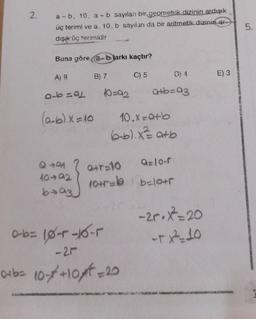 2.
a - b, 10, a + b sayıları bir geometrik dizinin ardışık
üç terimi ve a, 10, b sayıları da bir aritmetik dizinin ar-
dışık üç terimidir.
5.
Buna göre, a - b farkı kaçtır?
A) 9 B) 7 C) 5 D) 4 E) 3
a-b=a1 10=a2 a+b=a3
(a-b).x=10 10.x=a+b
(a-b).x²=a+b
a→a1
10→a2
b→a3
a+r=10 a=10-r
10+r=b b=10+r
-2r.x²=20
a-b=10-r-10-r -r x²=10
-2r
a+b= 10-r+10+r=20